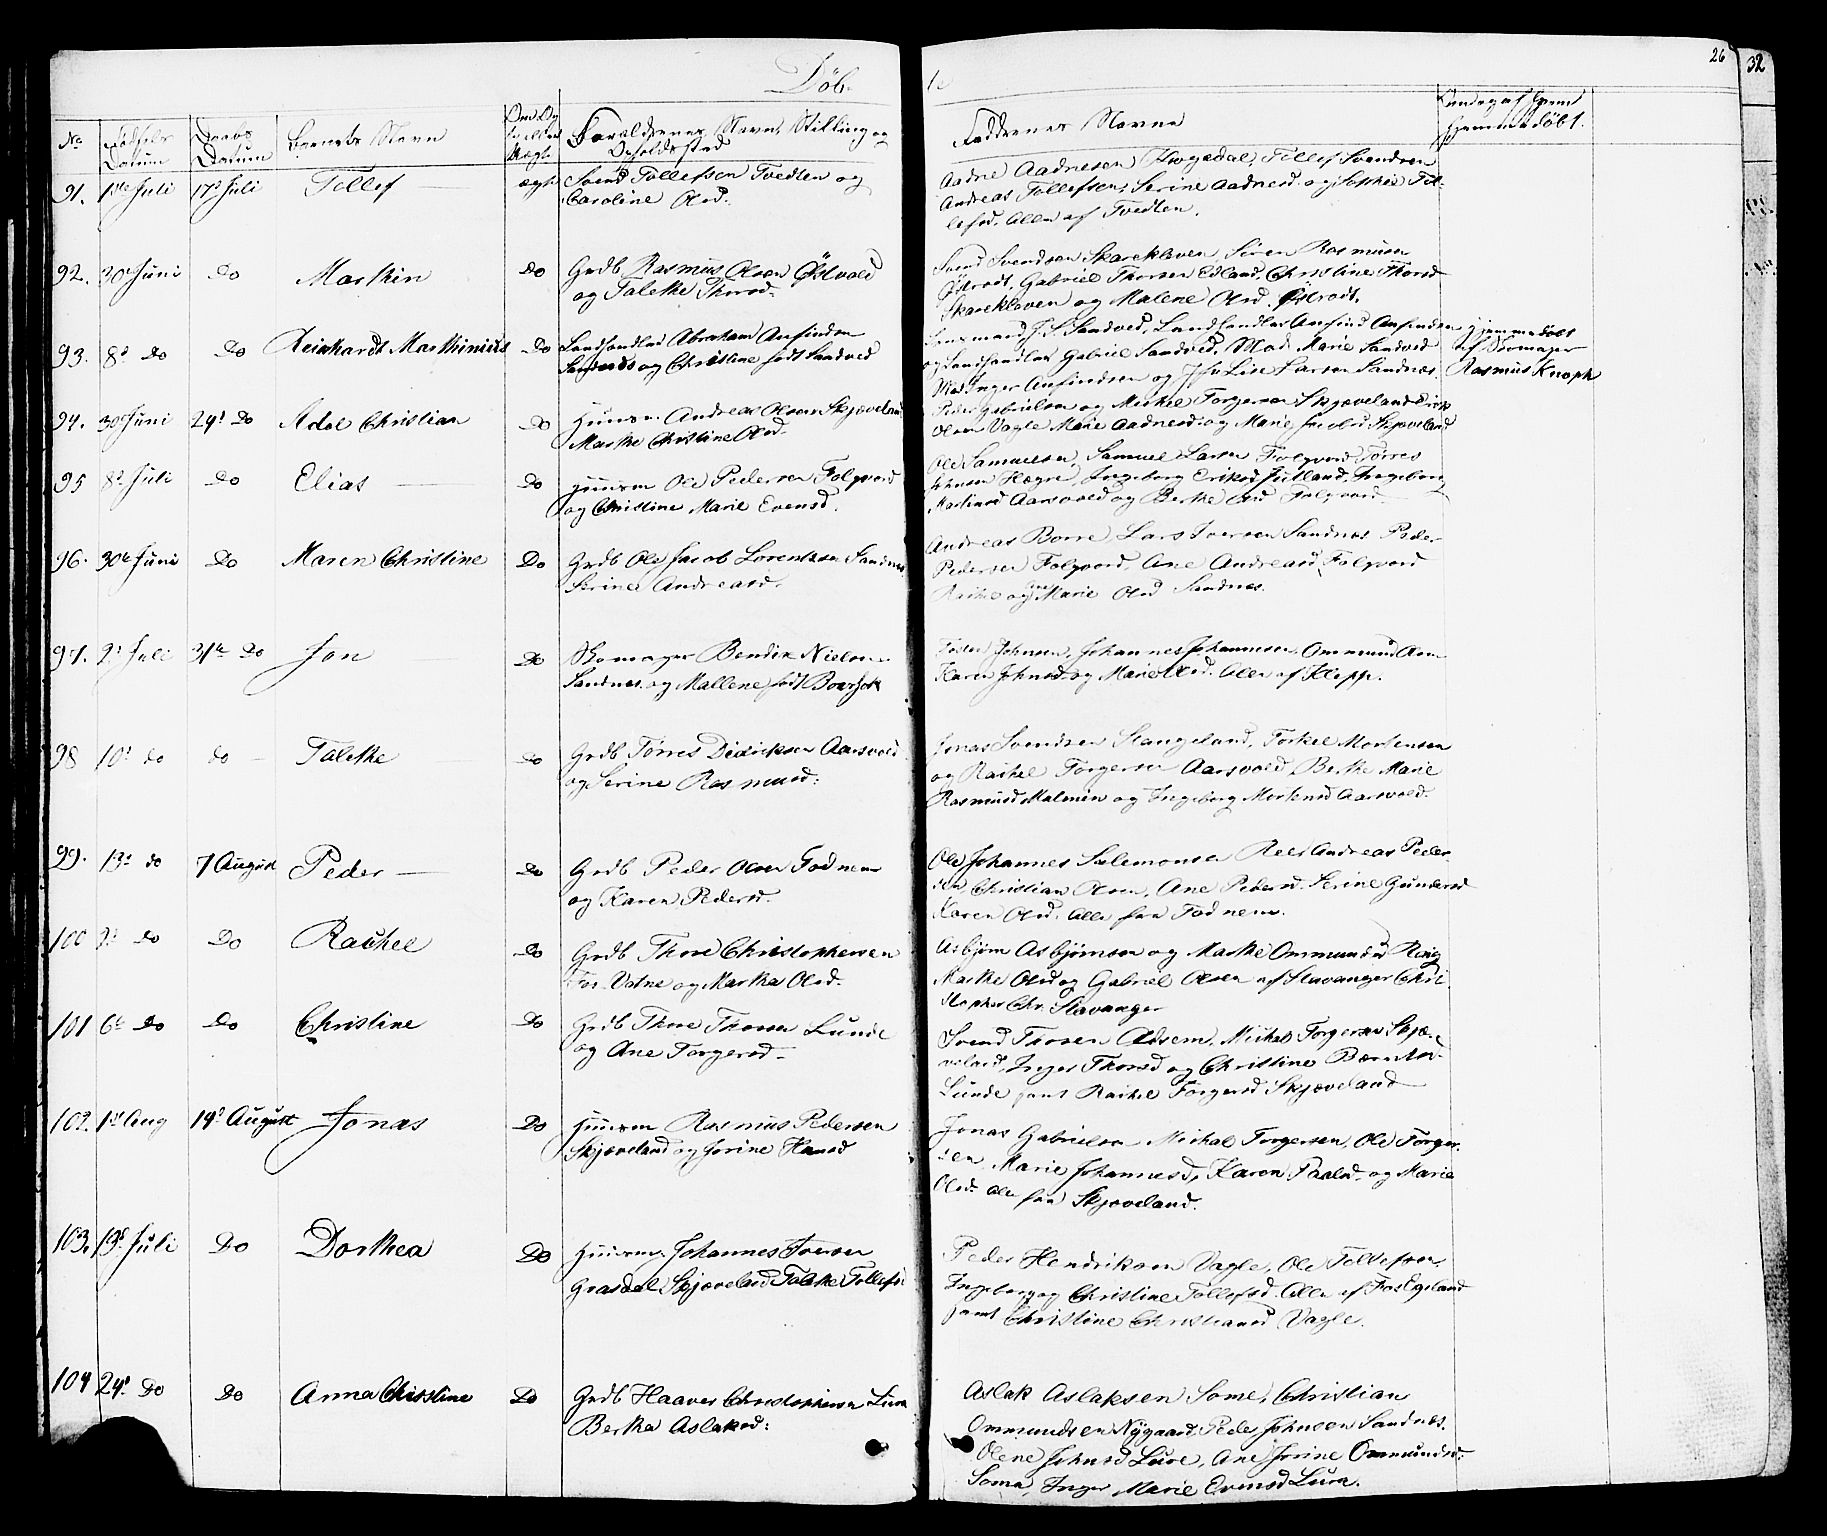 Døb-
26
32
No
Fødsels Datum
Daabs Datum
Barnets Navn
Forældrenes Navn, Stilling og
Opholdssted
Faddrenes Navne
Hjemmedøbt.
91. 1ste Juli 17d Juli Tollef ægte Svend Tollefsen Tvedten og
Caroline Olsd.
Aadne Aadnesen Tollef Svendsen
Andreas Tollefsen, Serine Aadnesd. og Sophie Tol-
lefsd. Alle af Tvedten.
92. 30 Juni Do Marthin Do Grdb Rasmus Olsen Østvold
og Talethe Thorsd.
Svend Svendsen Skarekloven, Sören Rasmusen
Østvodt, Gabriel Thorsen Edland, Christine Thorsd
Skarekloven og Malene Olsd. Østrodt.
93. 8d Do Do Reinhardt Marthinius Do Landhandler Abraham Anfindsen
Sandnes og Christine født Sandved
Lensmand J. S. Sandved, Landhandler Anfind Anfindsen
og Landhandler Gabriel Sandved, Mad. Marie Sandved
Mad. Inger Anfindsen og Jfr Lise Larsen Sandnæs.
Hjemmedøbt
af
Rasmus Knoph
94. 30 Juni 24d Do Adol Christian Do Huusm. Andreas Olsen Skjæveland
Marthe Christine Olsd.
Peder Gabrielsen og Michel Torgersen Skjæveland
Olsen Vagle Marie Aadnesd og Marie Jacobsd Skjæveland
95 8d Juli Do Elias Do Huusm Ole Pedersen Folgvord
og Christine Marie Evensd.
Ole Samuelsen, Samuel Larsen Folgvord Torres
Johnsen Høgre, Ingeborg Eriksd Jutland, Ingeborg
Martinsd Aarsvold og Berthe Olsd Folgvord
96. 30te Juni Do Maren Christine Do Grdb Ole Jacob Lorentsen Sandnes
Serine Andreasd.
Andreas Borre Lars Iversen Sandnes Peder
Pedersen Folgvord, Ane Andreasd Folgvord
Rachel og Ane Marie Olsd Sandnes.
97. 2d Juli 31te Do Jon Do Skomager Bendix Nielsen
Sandnes og Mallene født
Johnsen, Johannes Johannesen, Ommund Aan
Karen Johnsd og Marie Olsd. Alle af Klepp.
98 10d do do Talethe do Grdb Törres Didricksen Aarsvold
og Serine Rasmusd:
Jonas Svendsen Stangeland, Torkel Mortensen
og Rachel Torgersen Aarsvold, Berthe Marie
Rasmusd Malmein og Ingeborg Mortensd Aarsvold.
99. 13d do 7 August Peder Do Grdb Peder Olsen Fodnem
og Karen Pedersd.
Ole Johannes Salemonsen Andreas Peder-
sen Christian Olsen, Ane Pedersd. Serine Gundersd
Karen Olsd. Alle fra Fodnem.
100 2d Do Do Rachel Do Grdb Thore Christophersen
Fos Vatne og Martha Olsd.
Asbjørn Asbjørnsen og Marthe Ommundsd Ring
Marthe Olsd og Gabriel Olsen af Stavanger Chri-
stopher Chr. Stavanger
101 6te Do Do Christine Do Grdb Thore Thorsen Lunde
og Ane Torgersd.
Svend Thorsen Michel Torgersen Skjæ-
veland, Inger Thorsd og Christine
Lunde samt Rachel Torgersd Skjæveland
102. 1st Aug 14d August Jonas Do Huusm Rasmus Pedersen
Skjæveland og Jorine Hansd
Jonas Gabrielsen Michal Torgersen, Ole Torger-
sen, Marie Johannesd, Karen Paalsd. og Marie
Olsd. Alle fra Skjæveland.
103. 19d Juli Do Dorthea Do Huusm. Johannes Iversen
Grasdal Skjæveland Talethe Tollefsd
Peder Hendriksen Vagle, Ole Tollefsen,
Ingeborg og Christine Tollefsd. Alle af Fos Egeland
samt Christine Christiansd Vagle.
104 24d Do Do Anna Christine Do Grdb Haaver Christophersen Lura
Bertha Aslaksd:
Aslak Aslaksen Some, Christian
Ommundsen Nygaard, Peder Johnsen Sandnæs.
Olene Johnsd Lure, Ane Jorine Ommundsd:
Soma, Inger Marie Evensd Lura.